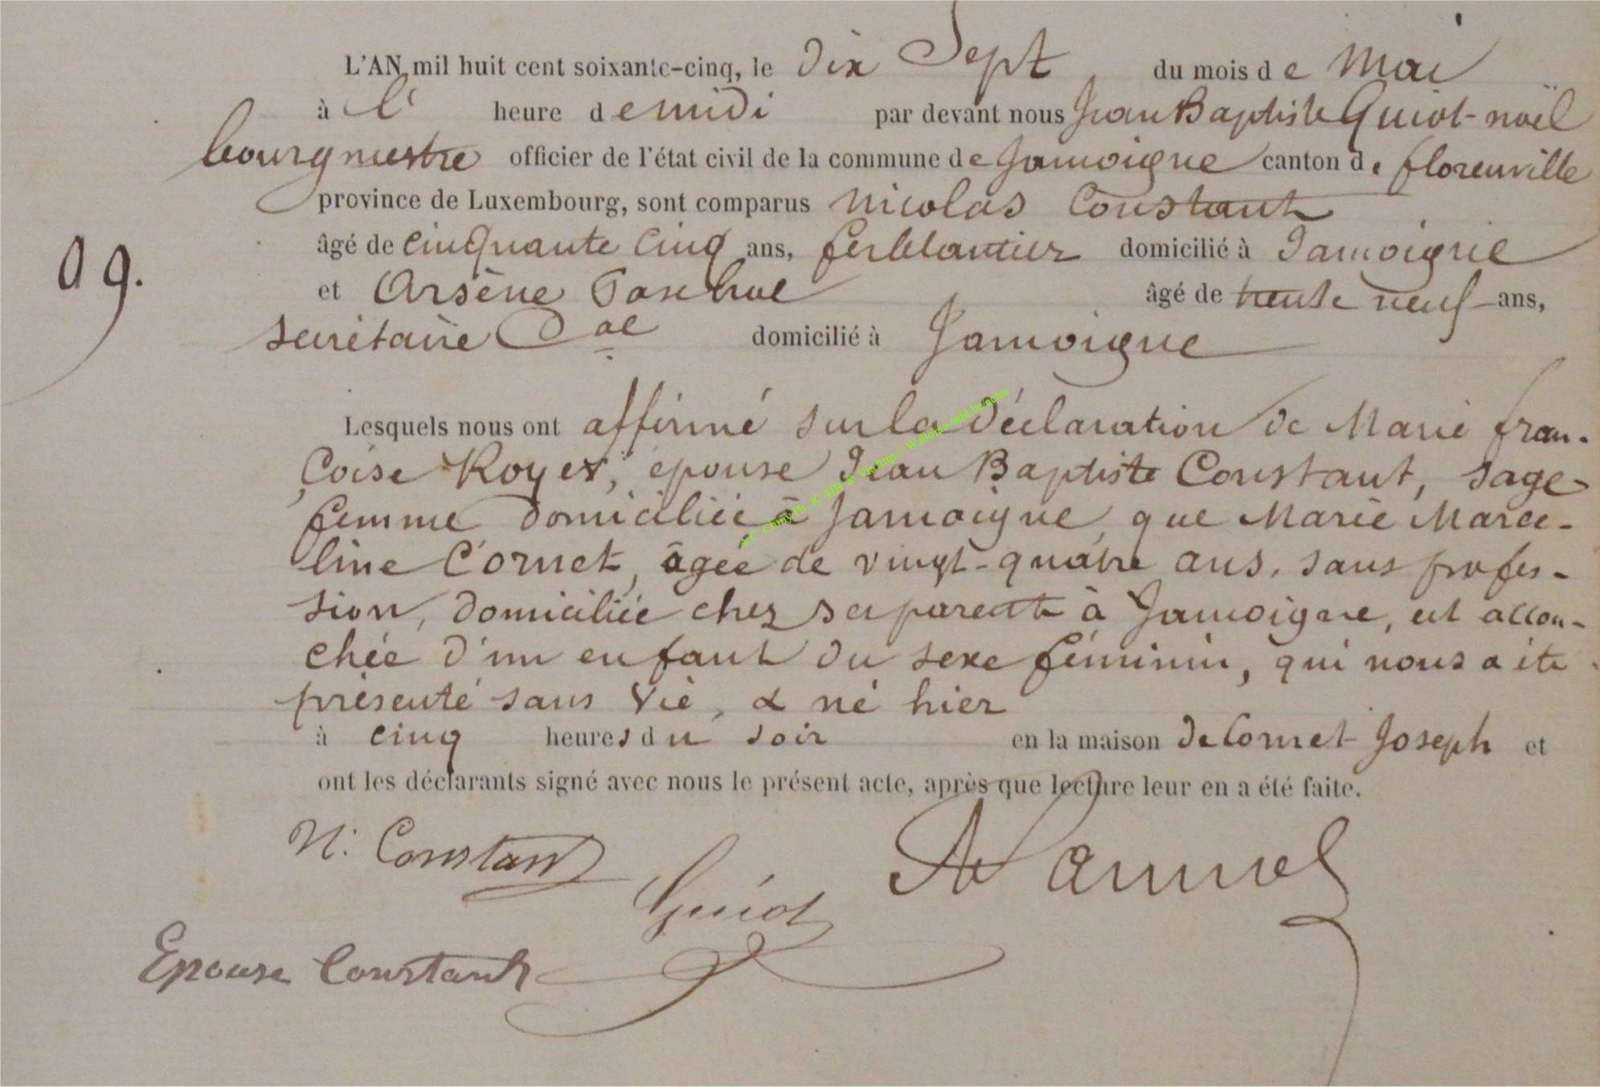 L'AN mil huit cent soixante-cinq, le dix Sept du mois de Mai
à l' heure de midi par devant nous Jean Baptiste Guiot-noël
bourgmestre officier de l'état civil de la commune de Jamoigne canton de florenville
province de Luxembourg, sont comparus Nicolas Constant
âgé de cinquante cinq ans, ferblantier domicilié à Jamoigne
09.
et Arsène âgé de trente neuf ans,
secrétaire Cal domicilié à Jamoigne
Lesquels nous ont affirmé sur la déclaration de Marie fran-
çoise Royer, épouse Jean Baptiste Constant, sage
femme domiciliée à Jamoigne que Marie Marce-
line Cornet, âgée de vingt-quatre ans, sans profes-
sion, domiciliée chez ses parents à Jamoigne, est accou-
chée d'un enfant du sexe féminin, qui nous a été
présenté sans vie, & né hier
à cinq heures du soir en la maison de Cornet Joseph et
ont les déclarants signé avec nous le présent acte, après que lecture leur en a été faite.
N. Constant
Guiot
Epouse Constant